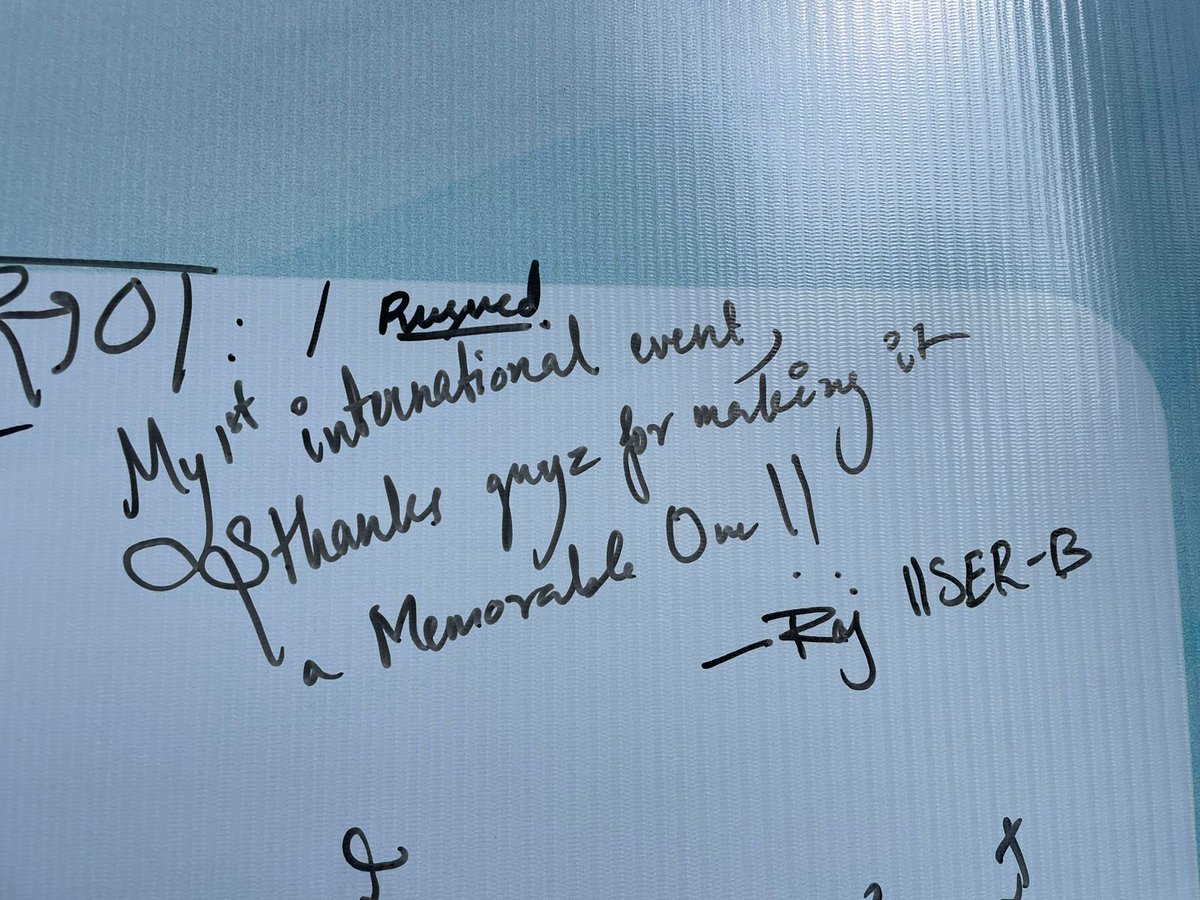 My 1st international event,
& thanks guyz for making it
a Memorable One !!
— Raj IISER-B